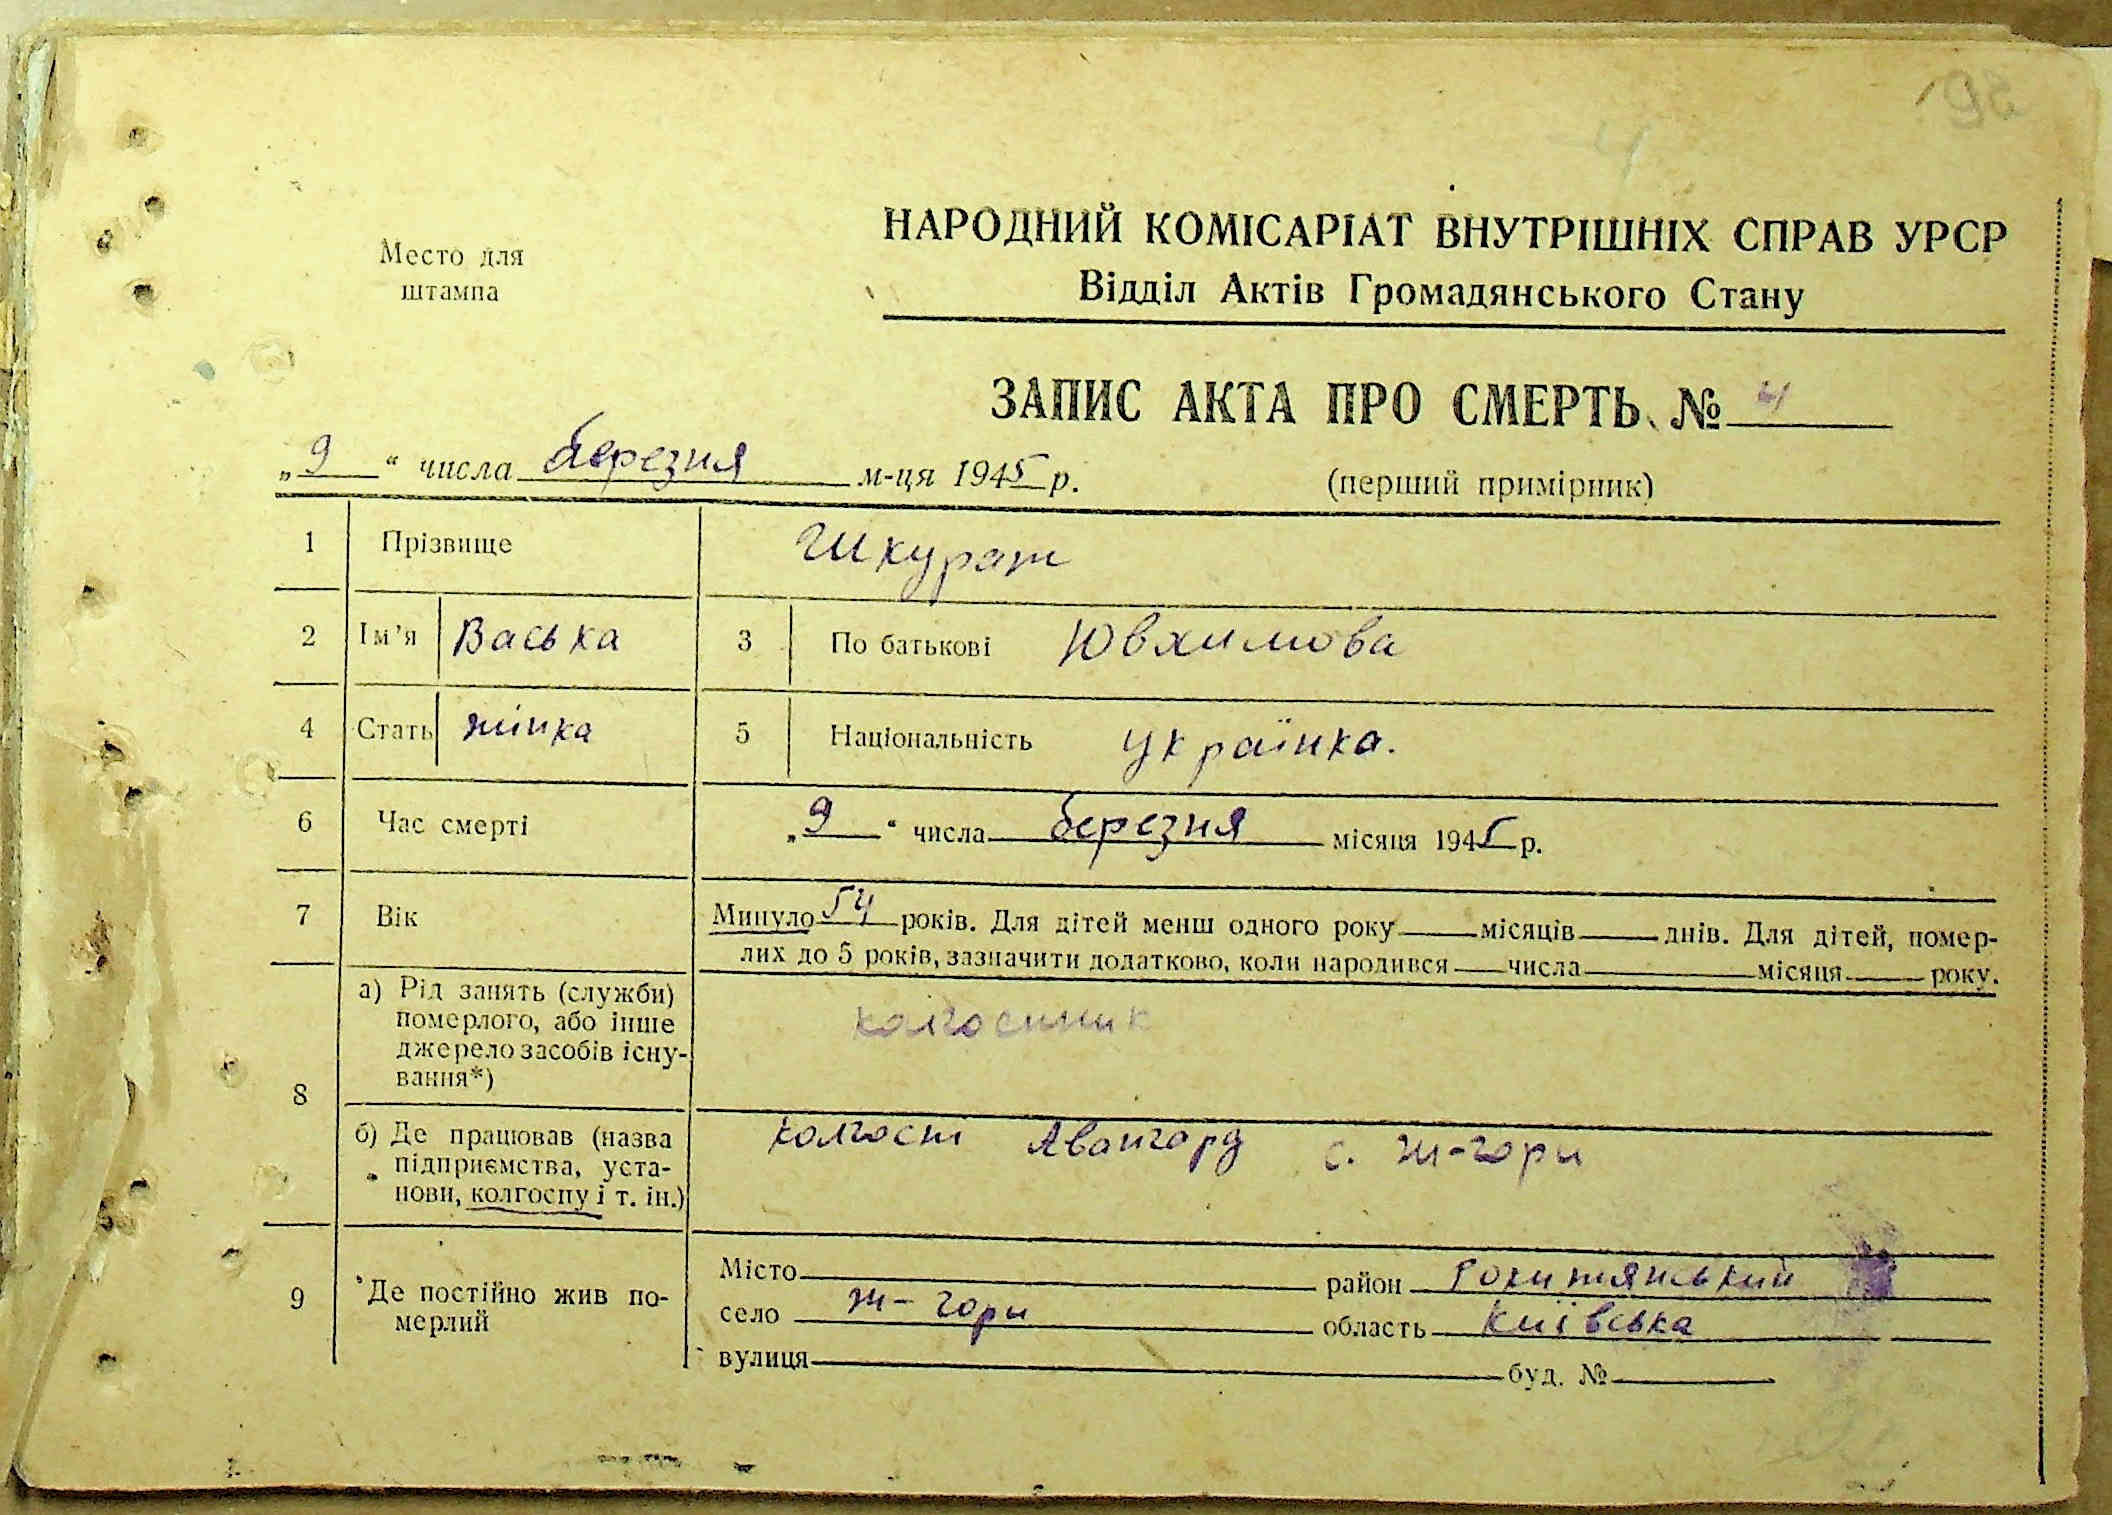 Место для
штампа
НАРОДНИЙ КОМІСАРІАТ ВНУТРІШНІХ СПРАВ УРСР
Відділ Актів Громадянського Стану
ЗАПИС АКТА ПРО СМЕРТЬ № 4
„9“ числа березня м-ця 1945 р.
(перший примірник)
1 Прізвище Шкурат
2 Ім’я Васька 3 По батькові Ювхимова
4 Стать жінка 5 Національність українка.
6 Час смерті „9“ числа березня місяця 1945 р.
7 Вік Минуло 54 років. Для дітей менш одного року місяців днів. Для дітей, помер-
лих до 5 років, зазначити додатково, коли народився числа місяця року.
8 а) Рід занять (служби)
померлого, або інше
джерело засобів існу-
вання*)
колгоспник
б) Де працював (назва
підприємства, уста-
нови, колгоспу і т. ін.)
колгосп Авангард с. Ж-гори
9 Де постійно жив по-
мерлий
Місто район Рокитянський
село Ж-гори область Київська
вулиця буд. №